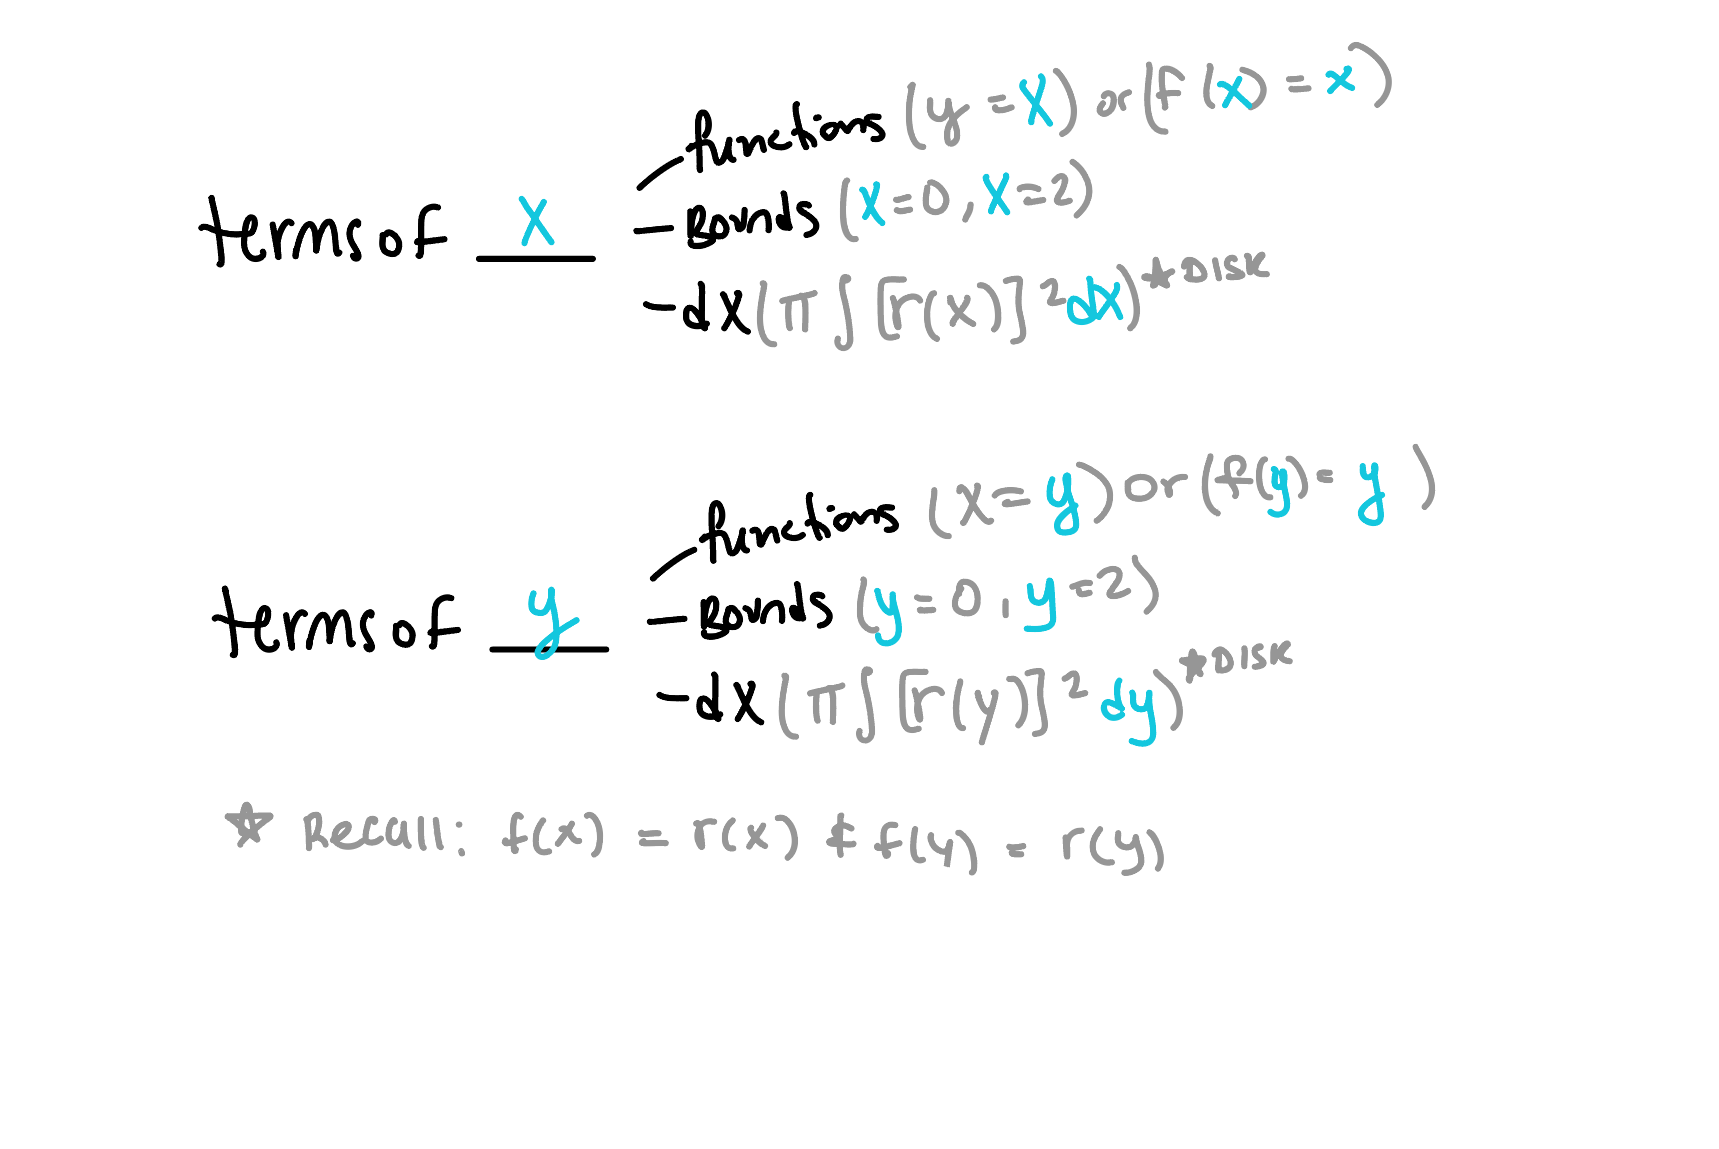 terms of x
functions (y = x) or (f(x) = x)
- Bounds (x=0, x=2)
- dx (π ∫ [r(x)]² dx) ★DISK
terms of y
functions (x = y) or (f(y) = y)
- Bounds (y = 0, y = 2)
- dx (π ∫ [r(y)]² dy) ★DISK
☆ Recall: f(x) = r(x) & f(y) = r(y)